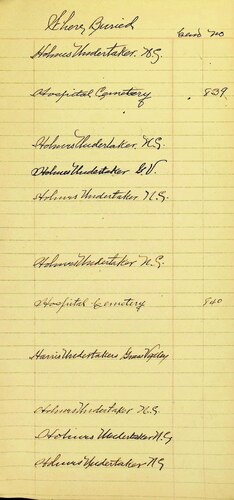 Where Buried
Cem'y no
Holmes Undertaker. N.G.
Hospital Cemetery 839
Holmes Undertaker, N.G.
Holmes Undertaker G.V.
Holmes Undertaker N.G.
Holmes Undertaker N.G.
Hospital Cemetery 840
Harris Undertakers, Grass Valley
Holmes Undertaker N.G.
Holmes Undertaker N.G
Holmes Undertaker N.G